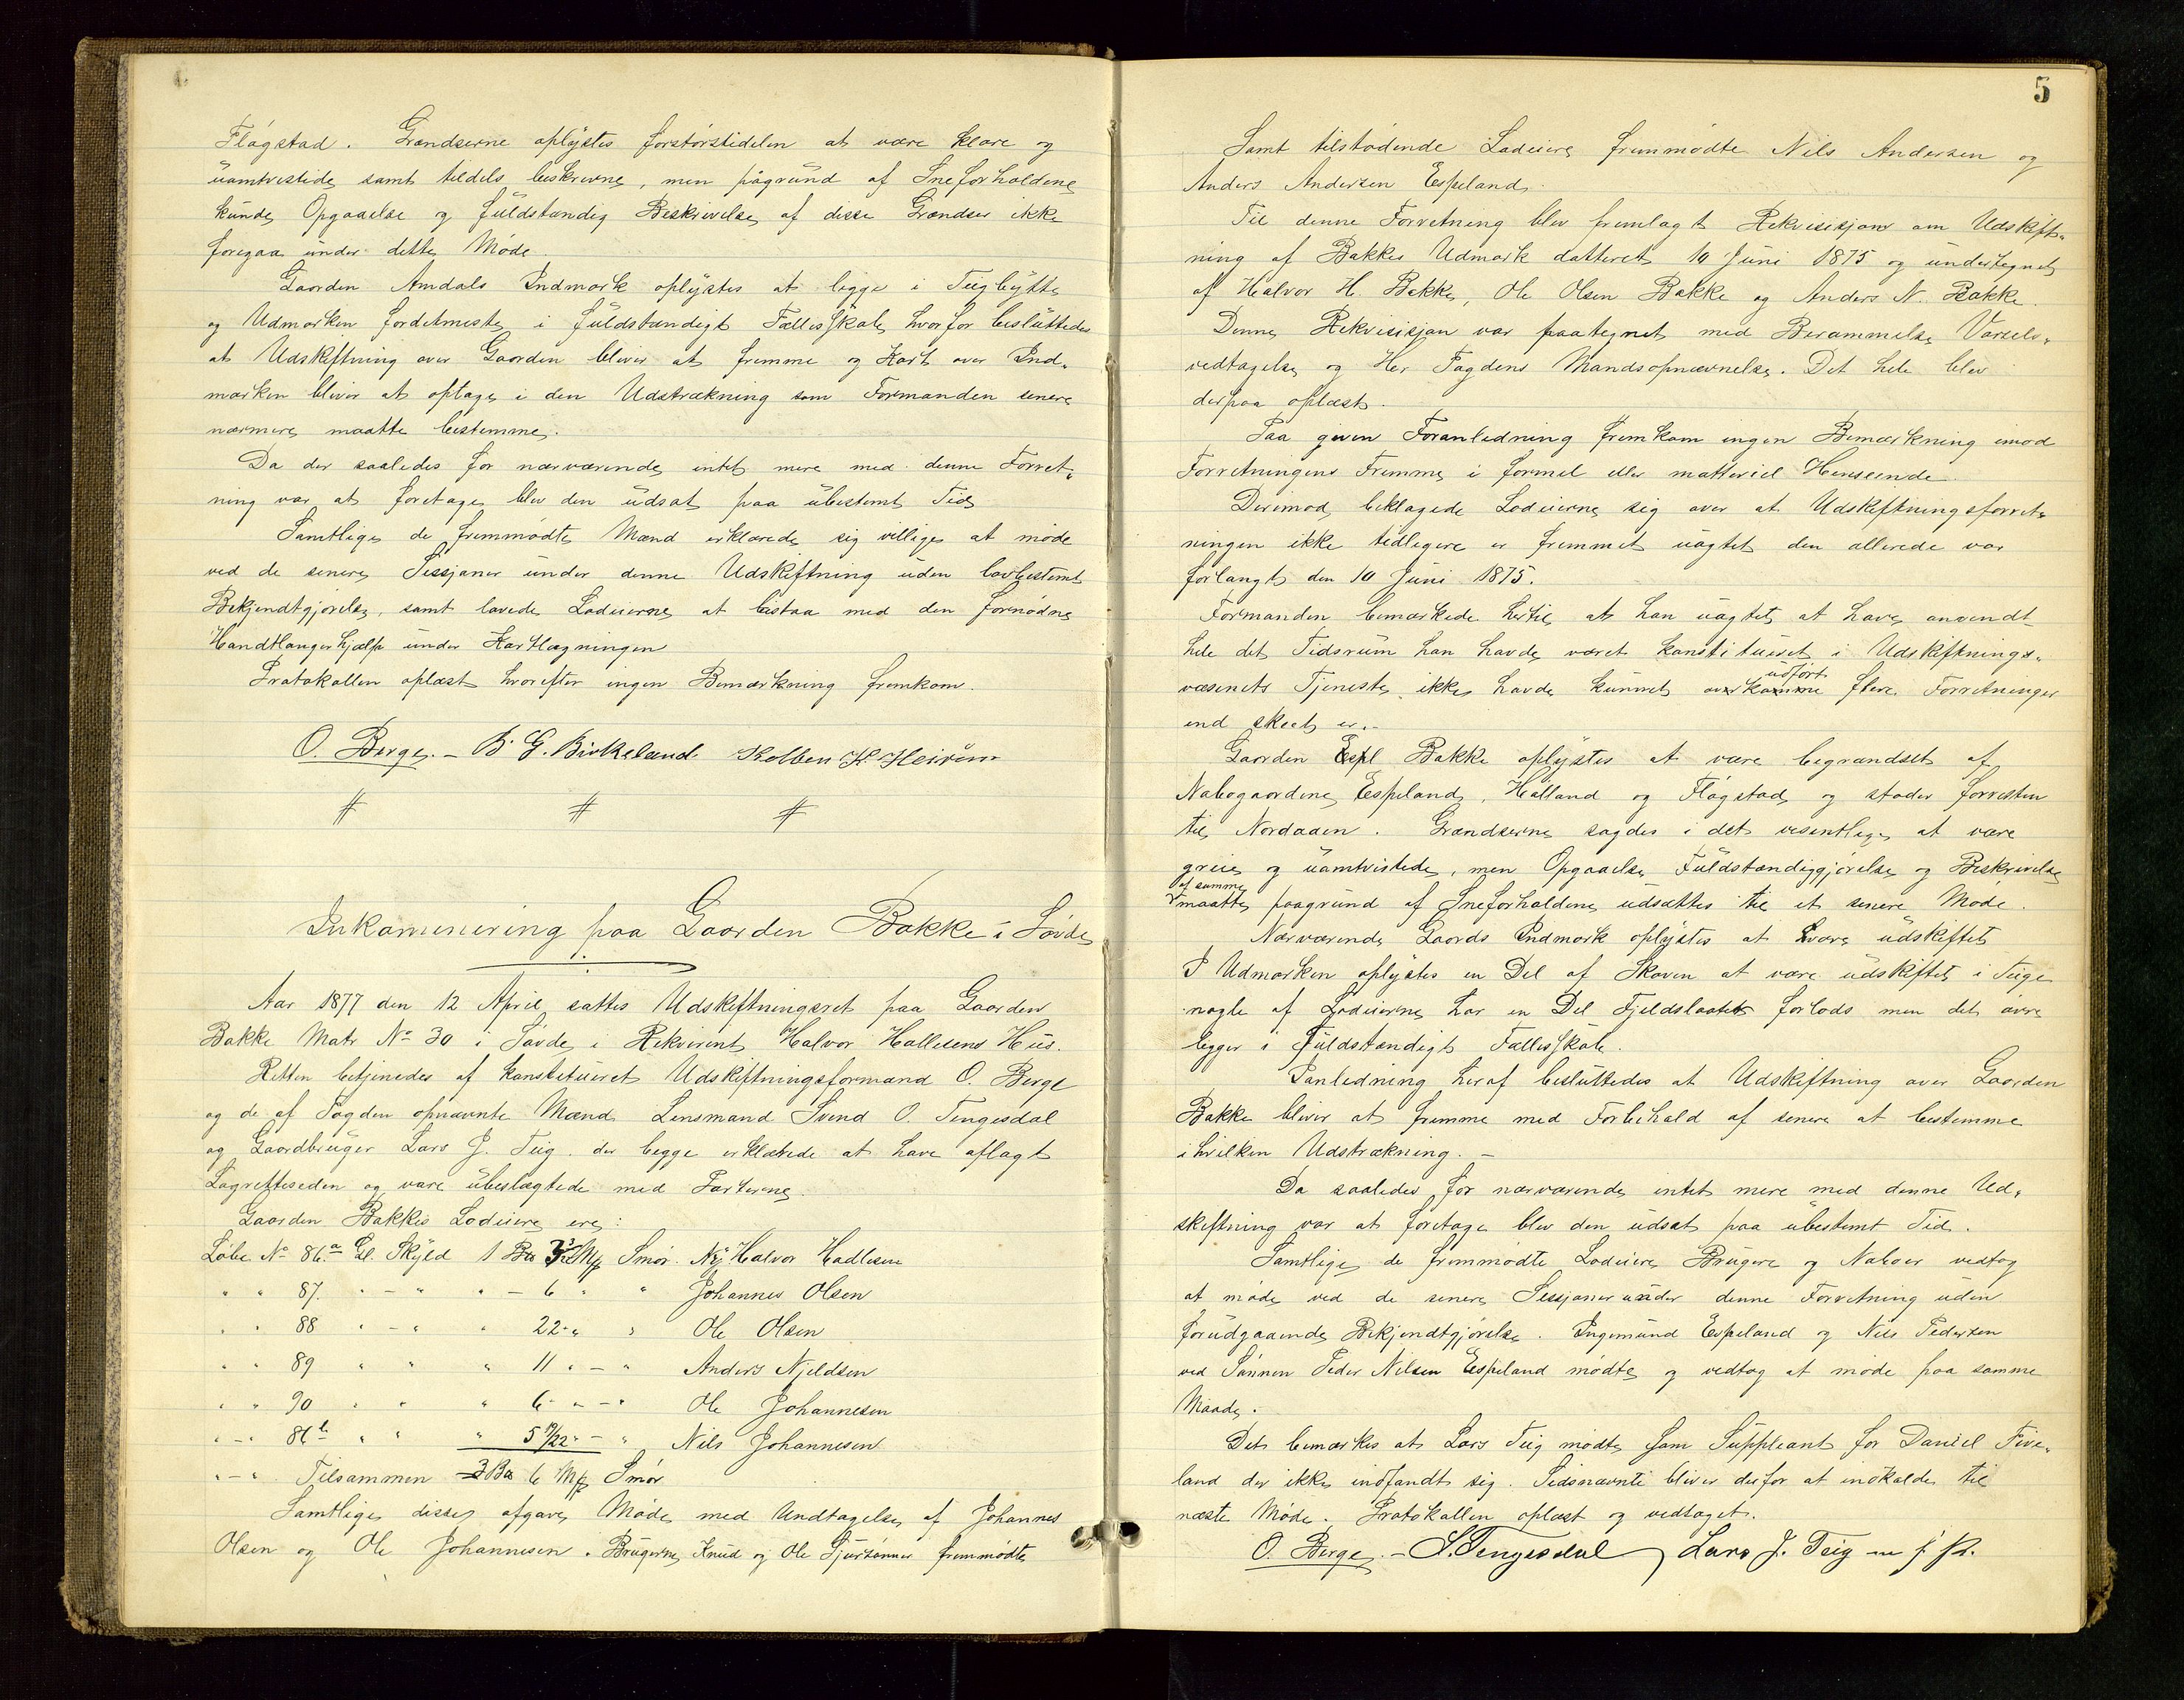 Flågstad. Grændserne oplystes forstørstedelen at være klare og
uomtvistede samt tildels beskrevne, men pågrund af Sneforholdene
kunde Opgaaelse og fuldstændig Beskrivelse af disse Grændser ikke
foregaa under dette Møde.
Gaarden Amdals Indmark oplystes at ligge i Teigbytte
og Udmarken fordetmeste i fuldstændigt Fællesskab hvorfor besluttedes
at Udskiftning over Gaarden bliver at fremme og Kart over Ind-
marken bliver at optage i den Udstrækning som Formanden senere
nærmere maatte bestemme.
Da der saaledes for nærværende intet mere med denne Forret-
ning var at foretage blev den udsat paa ubestemt Tid
Samtlige de fremmødte Mænd erklærede sig villige at møde
ved de senere Sessjoner under denne Udskiftning uden lovbestemt
Bekjendtgjørelse, samt lovede Lodeierne at bistaa med den fornødne
Handtlangerhjælp under Kartlægningen
Protokollen oplæst hvorefter ingen Bemærkning fremkom.
O. Berge. – B. G. Birkeland Kolben H. Heirum
# # #
Inkaminering paa Gaarden Bakke i Søvde
Aar 1877 den 12 April sattes Udskiftningsret paa Gaarden
Bakke Matr No 30 i Søvde i Rekvirent Halvor Hallesens Hus.
Retten betjenedes af konstitueret Udskiftningsformand O. Berge
og de af Fogden opnævnte Mænd Lensmand Svend O. Tengesdal
og Gaardbruger Lars J. Teig. der begge erklærede at have aflagt
Lagretteseden og være ubeslægtede med Parterne.
Gaarden Bakkes Lodeiere ere:
Løbe No 86a Gl. Skyld 1 Smør. Halvor Hadlesen
" " 87. " - " " - 6 " " Johannes Olsen
" " 88 " - " " 22 - " " Ole Olsen
" " 89 " " " 11 " - " Anders Njeldsen
" " 90 " " " 6 - " - " Ole Johannesen
" - " 86b " " " 5 " - " Nils Johannesen
" - " Tilsammen 3 6 Smør
Samtlige disse afgave Møde med Undtagelse af Johannes
Olsen og Ole Johannesen. Brugerne Knud og Ole fremmødte
5
Samt tilstødende Lodeiere fremmødte Nils Andersen og
Anders Andersen Espeland.
Til denne Forretning blev fremlagt Rekvisisjon om Udskift-
ning af Bakkes Udmark datteret 10 Juni 1875 og undertegnet
af Halvor H. Bakke, Ole Olsen Bakke og Anders N. Bakke.
Denne Rekvisisjon var paategnet med Berammelse Varsels-
vedtagelse og Hr Fogdens Mandsopnævnelse. Det hele blev
derpaa oplæst.
Paa given Foranledning fremkom ingen Bemærkning imod
Forretningens Fremme i formel eller matteriel Henseende.
Derimod beklagede Lodeierne sig over at Udskiftningsforret-
ningen ikke tidligere er fremmet uagtet den allerede var
forlangt den 10 Juni 1875.
Formanden bemærkede hertil at han uagtet at have anvendt
hele det Tidsrum han havde været konstitueret i Udskiftnings-
udført
væsenets Tjeneste ikke havde kunnet overkomme flere Forretninger
end skeet er.–
Gaarden Espl Bakke oplystes at være begrændset af
Nabogaardene Espeland, Hålland og Flågstad og støder forresten
til Nordaaen. Grændserne sagdes i det vesentlige at være
greie og uomtvistede, men Opgaaelse Fuldstændiggjørelse og Beskrivelse
af samme
maatte paagrund af Sneforholdene udsættes til et senere Møde.
Nærværende Gaards Indmark oplystes at være udskiftet
I Udmarken oplystes en Del af Skoven at være udskiftet i Teige
nogle af Lodeierne har en Del Fjeldslaatter forlods men det øvre
ligger i fuldstændigt Fællesskab.
Ianledning heraf besluttedes at Udskiftning over Gaarden
Bakke bliver at fremme med Forbehold af senere at bestemme
ihvilken Udstrækning. –
Da saaledes for nærværende intet mere med denne Ud-
skiftning var at foretage blev den udsat paa ubestemt Tid.
Samtlige de fremmødte Lodeiere Brugere og Naboer vedtog
at møde ved de senere Sessjoner under denne Forretning uden
forudgaaende Bekjendtgjørelse. Ingemund Espeland og Nils Pedersen
ved Sønnen Peder Nilsen Espeland mødte og vedtog at møde paa samme
Maade.
Det bemærkes at Lars Teig mødte som Suppleant for Daniel Five-
land der ikke indfandt sig. Sidsnævnte bliver derfor at indkalde til
næste Møde. Protokollen oplæst og vedtaget.
O. Berge. – S. Tengesdal Lars J. Teig m f. P.